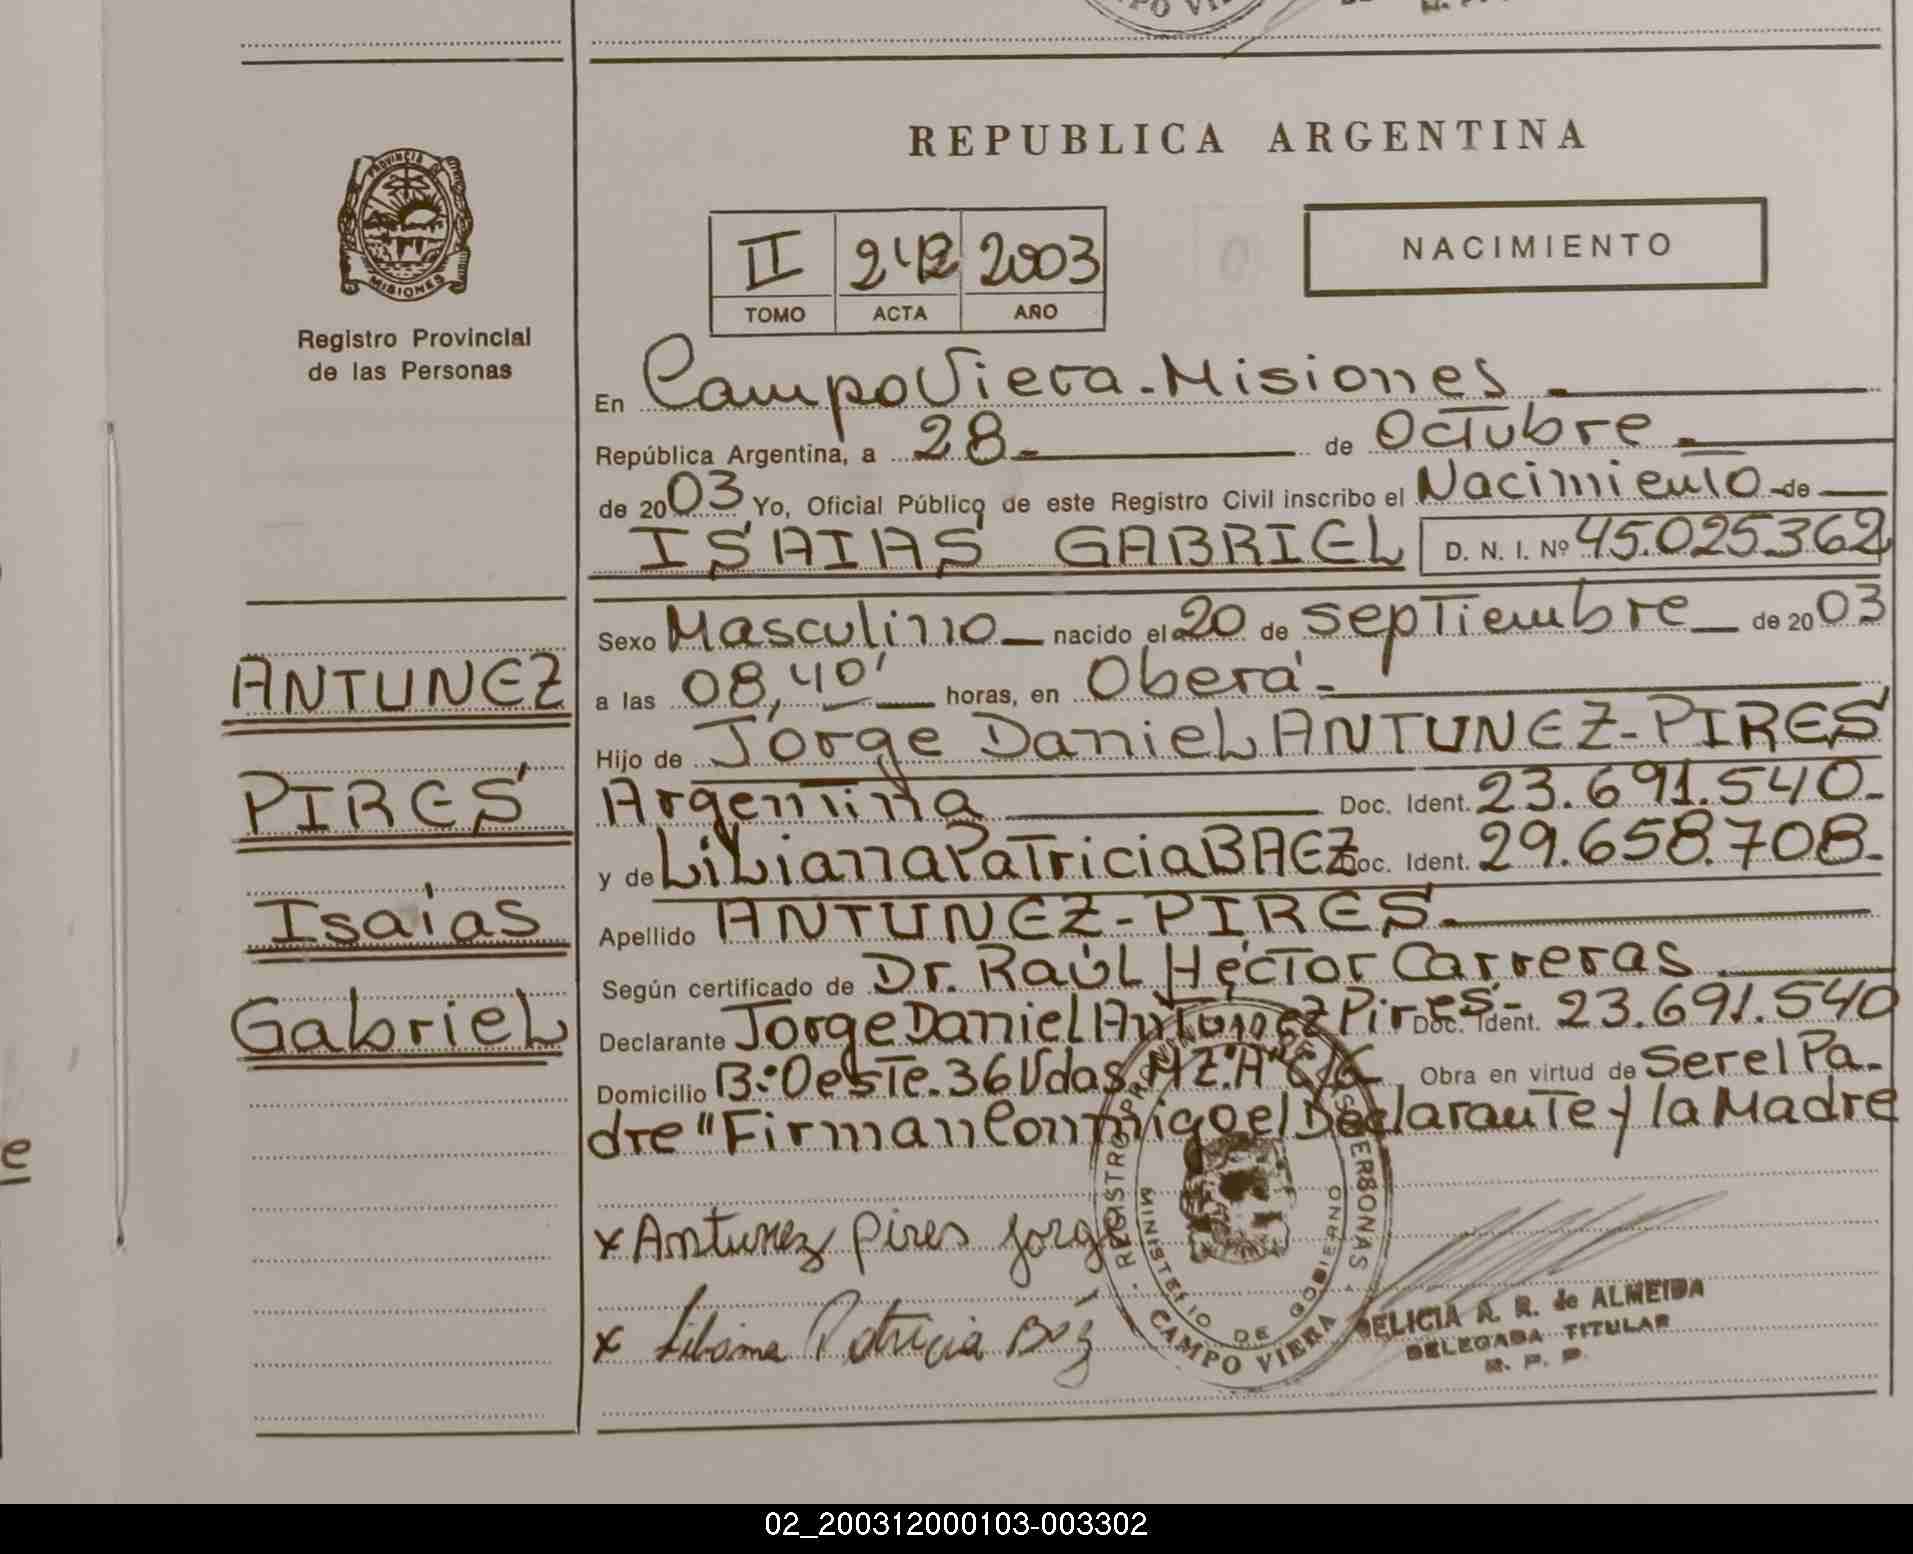 REPUBLICA ARGENTINA
PROVINCIA DE
MISIONES
Registro Provincial
de las Personas
II 2003
TOMO ACTA AÑO
NACIMIENTO
En Campo Viera-Misiones
República Argentina, a 28 de Octubre
de 2003 Yo, Oficial Público de este Registro Civil inscribo el Nacimiento de
ISAIAS GABRIEL D. N. I. Nº 45.025.362
Sexo Masculino nacido el 20 de septiembre de 2003
a las 08,40' horas, en Oberá
Hijo de Jorge Daniel ANTUNEZ-PIRES
Argentina Doc. Ident. 23.691.540-
y de Liliana Patricia BAEZ Doc. Ident. 29.658.708-
Apellido ANTUNEZ-PIRES
Según certificado de Dr. Raúl Héctor Carreras
Declarante Jorge Daniel Antunez Pires- Doc. Ident. 23.691.540
Domicilio B:º Oeste. 36 Vdas. MZ. "A" Obra en virtud de Ser el Pa-
dre "Firman Conmigo el Declarante y la Madre
ANTUNEZ
PIRES
Isaias
Gabriel
x Antunez Pires Jorge
x Liliana Patricia
REGISTRO PERSONAS
MINISTERIO DE GOBIERNO
CAMPO VIERA
DELICIA A. R. de ALMEIDA
DELEGADA TITULAR
R. P. P.
e
02_200312000103-003302